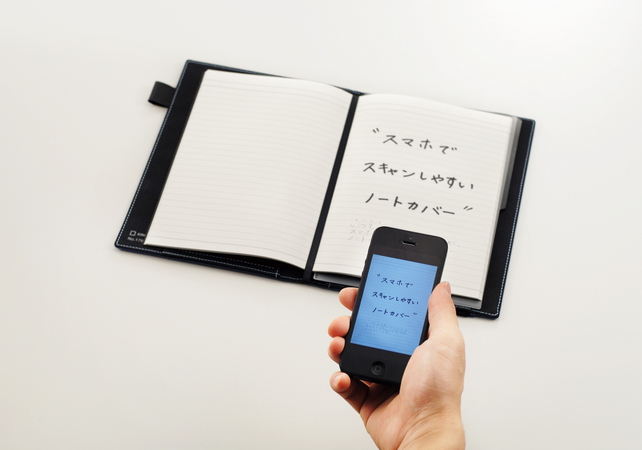 “スマホで
スキャンしやすい
ノートカバー”
“スマホで
スキャンしやすい
ノートカバー”